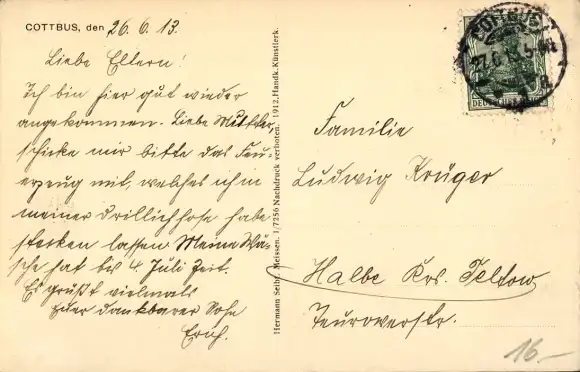 COTTBUS, den 26.6.13.
Liebe Eltern!
Ich bin hier gut wieder
angekommen. Liebe Mutter
schicke mir bitte das Feu-
erzeug mit, welches ich in
meiner Drillichhose habe
stecken lassen Meine Wä-
sche hat bis 4. Juli Zeit.
Es grüßt vielmals
Euer dankbarer Sohn
Erich.
Hermann Seibt, Meissen. 1/7256 Nachdruck verboten. 1912. Handk. Künstlerk.
COTTBUS
27.6.13.5-6N
DEUTSCHES
Familie
Ludwig Krüger
Halbe Krs. Teltow
Teurowerstr.
16-